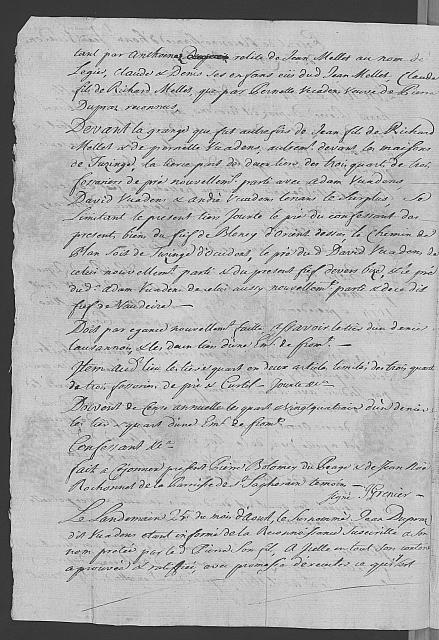 tant par Anthoina relite de Jean Mellet au nom de
Legier, Claude & Denis ses enfans eüs dud Jean Mellet, Claude
fils de Richard Mellet, que par Pernelle Vuadens veuve de Pierre
Dupraz reconnus,
Devant la grange que fut autrefois de Jean fils de Richard
Mellet & de pernelle Vuadens, autrement devant les maisons
de la tierce part de deux tiers des trois quarts de trois
fossoriers de pré nouvellemt. parti avec Adam Vuadens
David Vuadens & André Vuadens tenans le surplus, Se
limitant le present tiers Jouxte le pré du confessant des
present, bien du fief de Blonay d'orient dessus, le chemin de
d'occident, le pré dud David Vuadens de
celui nouvellemt. parti & du present fief devers & le pré
du d. Adam Vuaden de celui aussi nouvellemt. parti & de ce dit
fief de
Doit par egance nouvellemt. faitte assavoir le tiers d'un denier
lausannois, & les deux tiers d'une Em. de from.t
Item aud. lieu le tiers & quart en deux articles en trois quart
de trois fossorier de pré & Curtil Jouxte &c.
Doivent de Cense annuelle le quart & vingtquatrain d'un denier
les tiers & quart d'une Em. de from.t
Confessant &c.
fait à present Pierre Bolomey du & de Jean
Rochonnet de la Parroisse de St. Saphorin temoins
Signé Grenier
Le Landemain 25 du mois d'Aoust, le surnommé Jean Dupraz
dit Vuadens etant informé de la Reconnoissance susecritte a son
nom pretée par le d Pierre son fils, a Icelle en tout son contenu
approuvée & ratiffiée, avec promesse d'executer ce qu'il est